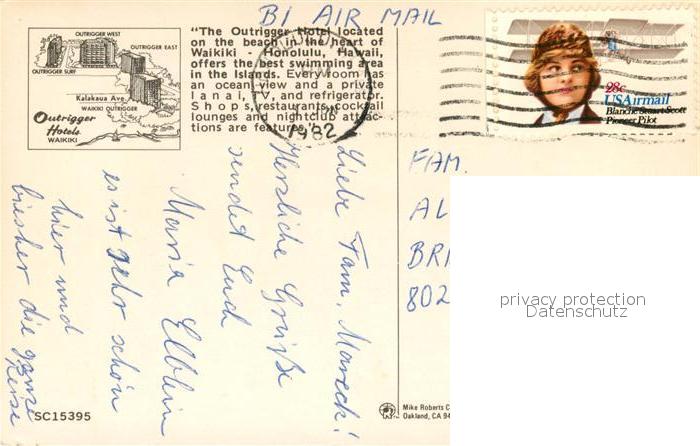 BI AIR MAIL
OUTRIGGER WEST
OUTRIGGER EAST
OUTRIGGER SURF
Kalakaua Ave.
WAIKIKI OUTRIGGER
Outrigger
Hotels
WAIKIKI
"The Outrigger Hotel located
on the beach in the heart of
Waikiki - Honolulu, Hawaii,
offers the best swimming area
in the Islands. Every room has
an ocean view and a private
lanai, TV, and refrigerator.
Shops, restaurants, cocktail
lounges and nightclub attrac-
tions are featured."
1982
28c
USAirmail
Blanche Stuart Scott
Pioneer Pilot
Liebe Fam. Mareck!
Herzliche Grüße
sendet Euch
Maria
es ist sehr schön
hier und
biesher die ganze
Reise
FAM.
AL
BRI
802
privacy protection
Datenschutz
SC15395
Mike Roberts C
Oakland, CA 94